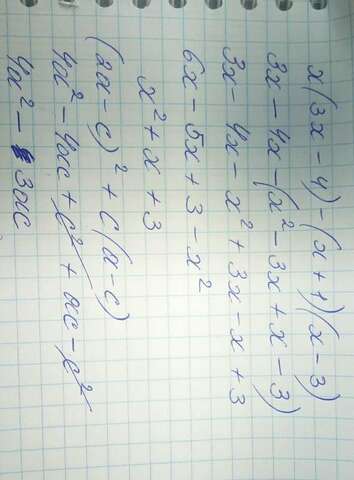 x(3x-4)-(x+1)(x-3)
3x-4x-(x²-3x+x-3)
3x-4x-x²+3x-x+3
6x-5x+3-x²
x²+x+3
(2a-c)²+c(a-c)
4a²-4ac+c²+ac-c²
4a²-3ac